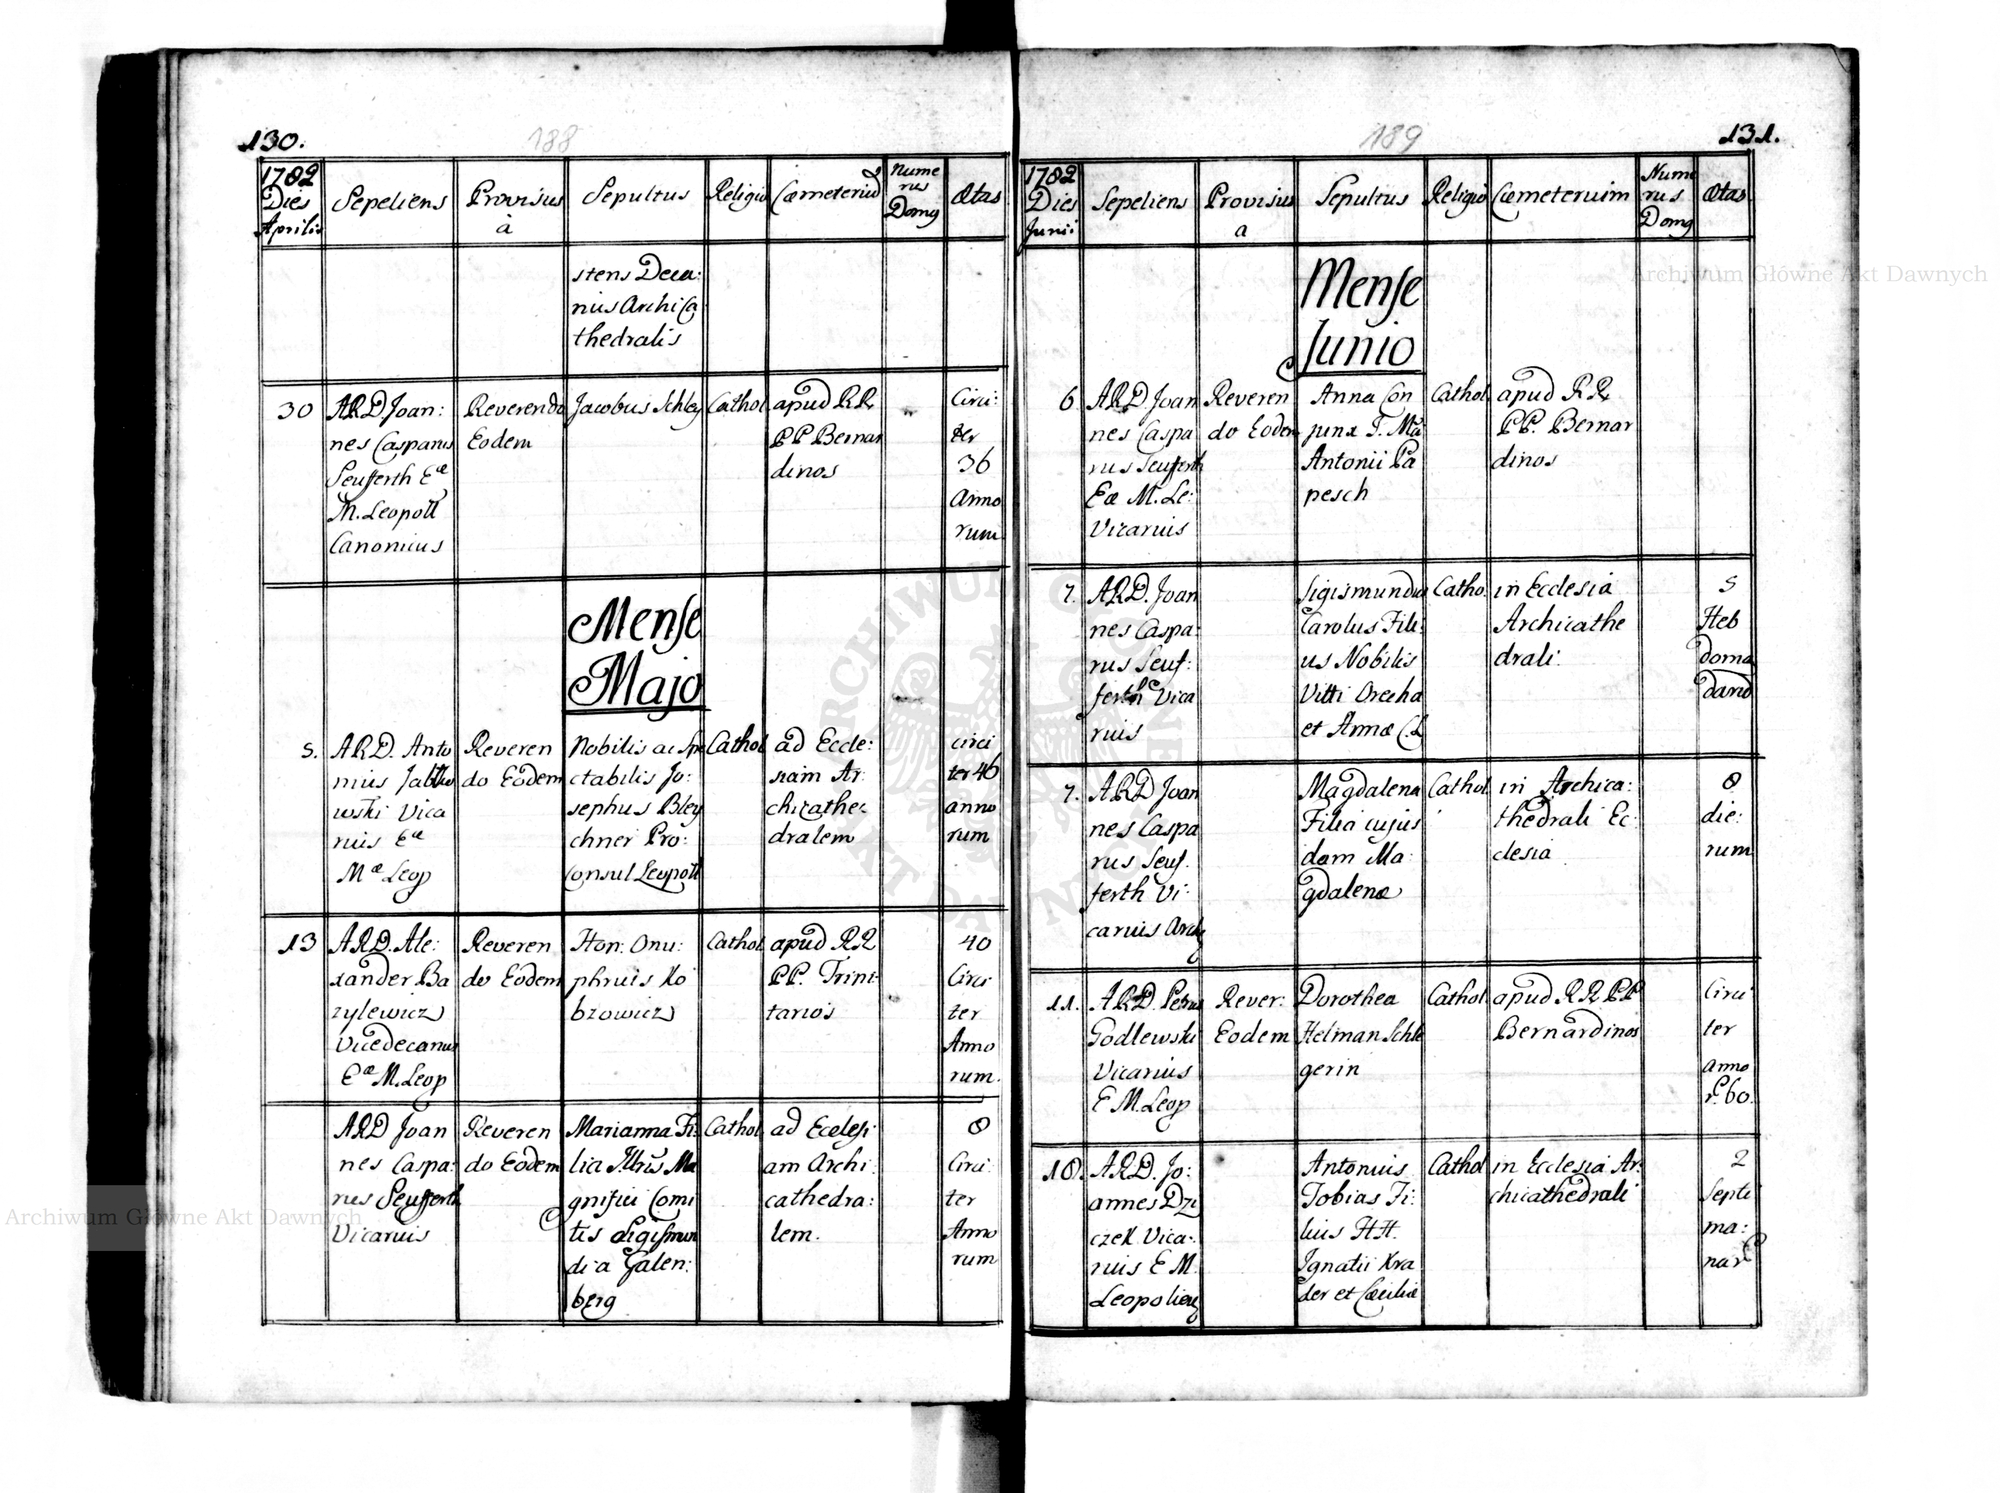 130.
188
1782
Dies
Aprilis
Sepeliens
Provisus
à
Sepultus
Religio
Cæmeteriū
Nume
rus
Domq
Ætas
stens Deca:
nus ArchiCa
thedralis
30
ARD Joan:
nes Casparus
Seufferth Eæ
M. Leopoll
Canonicus
Reverendo
Eodem
Jacobus Schley
Cathol
apud RR
PP Bernar
dinos
Circi:
ter
36
Anno
rum
Mense
Majo
5.
ARD. Anto
nius Jabłko
wski Vica
rius Eæ
Mæ Leop
Reveren
do Eodem
Nobilis ac Spe
ctabilis Jo:
sephus Bley
chner Pro:
Consul Leopoll
Cathol
ad Eccle:
siam Ar:
chicathe:
dralem
circi
ter 46
anno
rum
13
ARD. Ale:
xander Ba
zylewicz
Vicedecanus
Eæ M. Leop
Reveren
do Eodem
Hon: Onu:
phrius Ko
bzowicz
Cathol
apud RR
PP. Trini
tarios
40
Circi
ter
Anno
rum.
ARD Joan
nes Caspa:
rus Seufferth
Vicarius
Reveren
do Eodem
Marianna Fi:
lia Illris Ma
gnifici Comi
tis Sigismun
di a Galen:
berg
Cathol
ad Ecclesi
am Archi
cathedra:
lem.
8
Circi
ter
Anno
rum
189
131.
1782
Dies
Junii
Sepeliens
Provisus
a
Sepultus
Religio
Cæmeterium
Nume
rus
Domq
Ætas
Mense
Junio
6
ARD Joan
nes Caspa
rus Seufferth
Eæ M. Le:
Vicarius
Reveren
do Eodem
Anna Con
junx F. Mā
Antonii Pa
pesch
Cathol
apud RR
PP. Bernar
dinos
7.
ARD. Joan
nes Caspa:
rus Seuf:
ferth Vica
rius
Sigismundus
Carolus Fili:
us Nobilis
Vitti Orecha
et Annæ CL
Catho.
in Ecclesia
Archicathe
drali
5
Heb
doma
darū
7.
ARD Joan
nes Caspa
rus Seuf.
ferth Vi:
carius Arch
Magdalena
Filia cujus
dam Ma:
gdalenæ
Cathol
in Archica:
thedrali Ec:
clesia
8
die:
rum
11.
ARD. Petrus
Godlewski
Vicarius
E M. Leop
Rever:
Eodem
Dorothea
Helman Schle
gerin
Cathol
apud RR PP
Bernardinos
Circi
ter
anno
r: 60.
18.
ARD. Jo:
annes Dzi
czek Vica:
rius E M.
Leopolien
Antonius
Tobias Fi:
lius HH.
Ignatii Kra
der et Cæciliæ
Cathol
in Ecclesia Ar:
chicathedrali
2
Septi
ma:
nar
Archiwum Główne Akt Dawnych
Archiwum Główne Akt Dawnych
ARCHIWUM GŁÓWNE AKT DAWNYCH